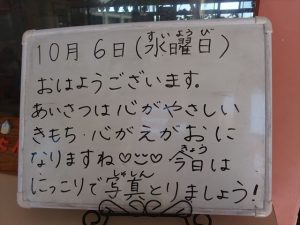 10月6日(水曜日)
すいようび
おはようございます。
あいさつは心がやさしい
きもち・心がえがおに
なりますね♡☺♡ 今日は
きょう
にっこりで写真とりましょう!
しゃしん